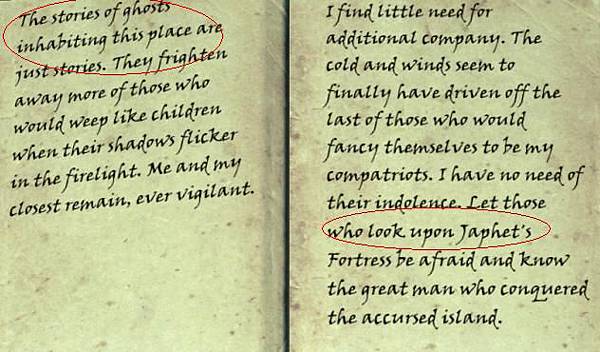 The stories of ghosts
inhabiting this place are
just stories. They frighten
away more of those who
would weep like children
when their shadows flicker
in the firelight. Me and my
closest remain, ever vigilant.
I find little need for
additional company. The
cold and winds seem to
finally have driven off the
last of those who would
fancy themselves to be my
compatriots. I have no need of
their indolence. Let those
who look upon Japhet's
Fortress be afraid and know
the great man who conquered
the accursed island.